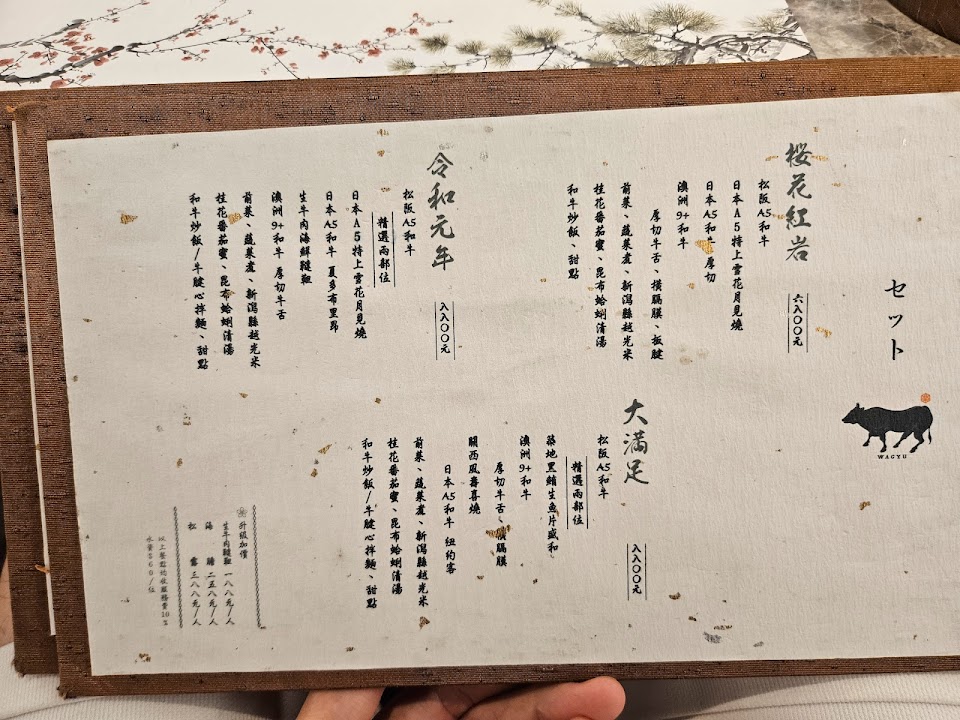 セット
WAGYU
桜花紅岩
六八〇〇元
松阪A5和牛
日本A5特上雪花月見燒
日本A5和牛 厚切
澳洲9+和牛
厚切牛舌、橫膈膜、板腱
前菜、蔬菜煮、新潟縣越光米
桂花番茄蜜、昆布蛤蜊清湯
和牛炒飯、甜點
令和元年
八八〇〇元
松阪A5和牛
精選兩部位
日本A5特上雪花月見燒
日本A5和牛 夏多布里昂
生牛肉海鮮韃靼
澳洲9+和牛 厚切牛舌
前菜、蔬菜煮、新潟縣越光米
桂花番茄蜜、昆布蛤蜊清湯
和牛炒飯/牛腱心拌麵、甜點
大満足
八八〇〇元
松阪A5和牛
精選兩部位
築地黑鮪生魚片盛和
澳洲9+和牛
厚切牛舌、橫膈膜
關西風壽喜燒
日本A5和牛 紐約客
前菜、蔬菜煮、新潟縣越光米
桂花番茄蜜、昆布蛤蜊清湯
和牛炒飯/牛腱心拌麵、甜點
升級加價
生牛肉韃靼 一八八元/人
海膽 二五八元/人
松露 三八八元/人
以上餐點均收服務費10%
水資$60/位